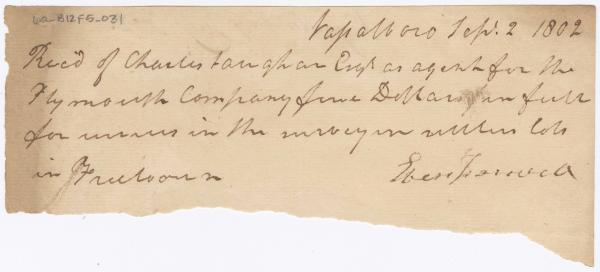 ua-B12F5-031
Vasalboro Sepr. 2 1802
Recd of Charles Vaughan Esqr as agent for the
Plymouth Company five Dollars in full
for in the survey in settlers lots
in Freetown
Eben